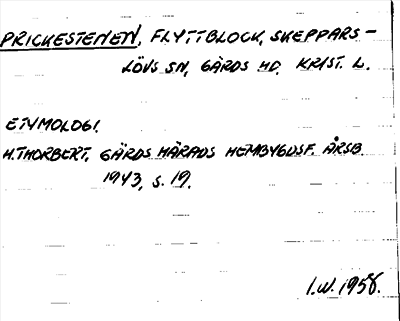 PRICKESTENEN, FLYTTBLOCK, SKEPPARS-
LÖVS SN, GÄRDS HD, KRIST. L.
ETYMOLOGI.
H. THORBERT, GÄRDS HÄRADS HEMBYGDSF. ÅRSB.
1943, S. 19.
I.W. 1958.